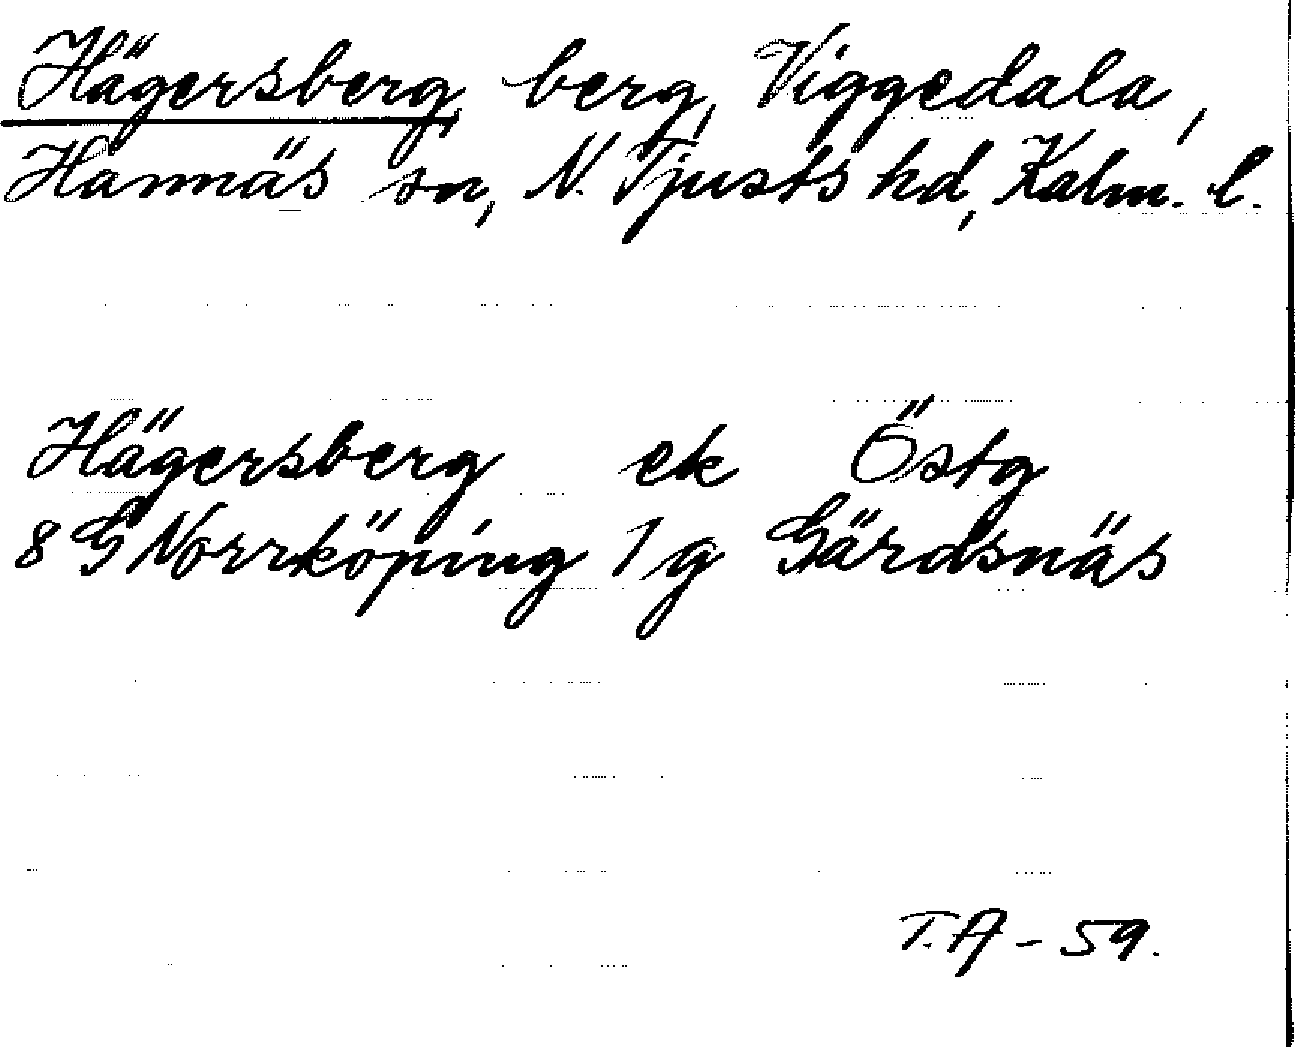 Hägersberg, berg, Viggedala,
Hannäs sn, N. Tjusts hd, Kalm. l.
Hägersberg ek Östg
8 G Norrköping 1 g Gärdsnäs
T.A - 59.